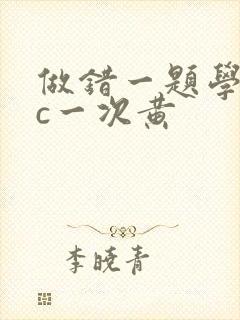 做錯一題學
c一次黄
李曉青